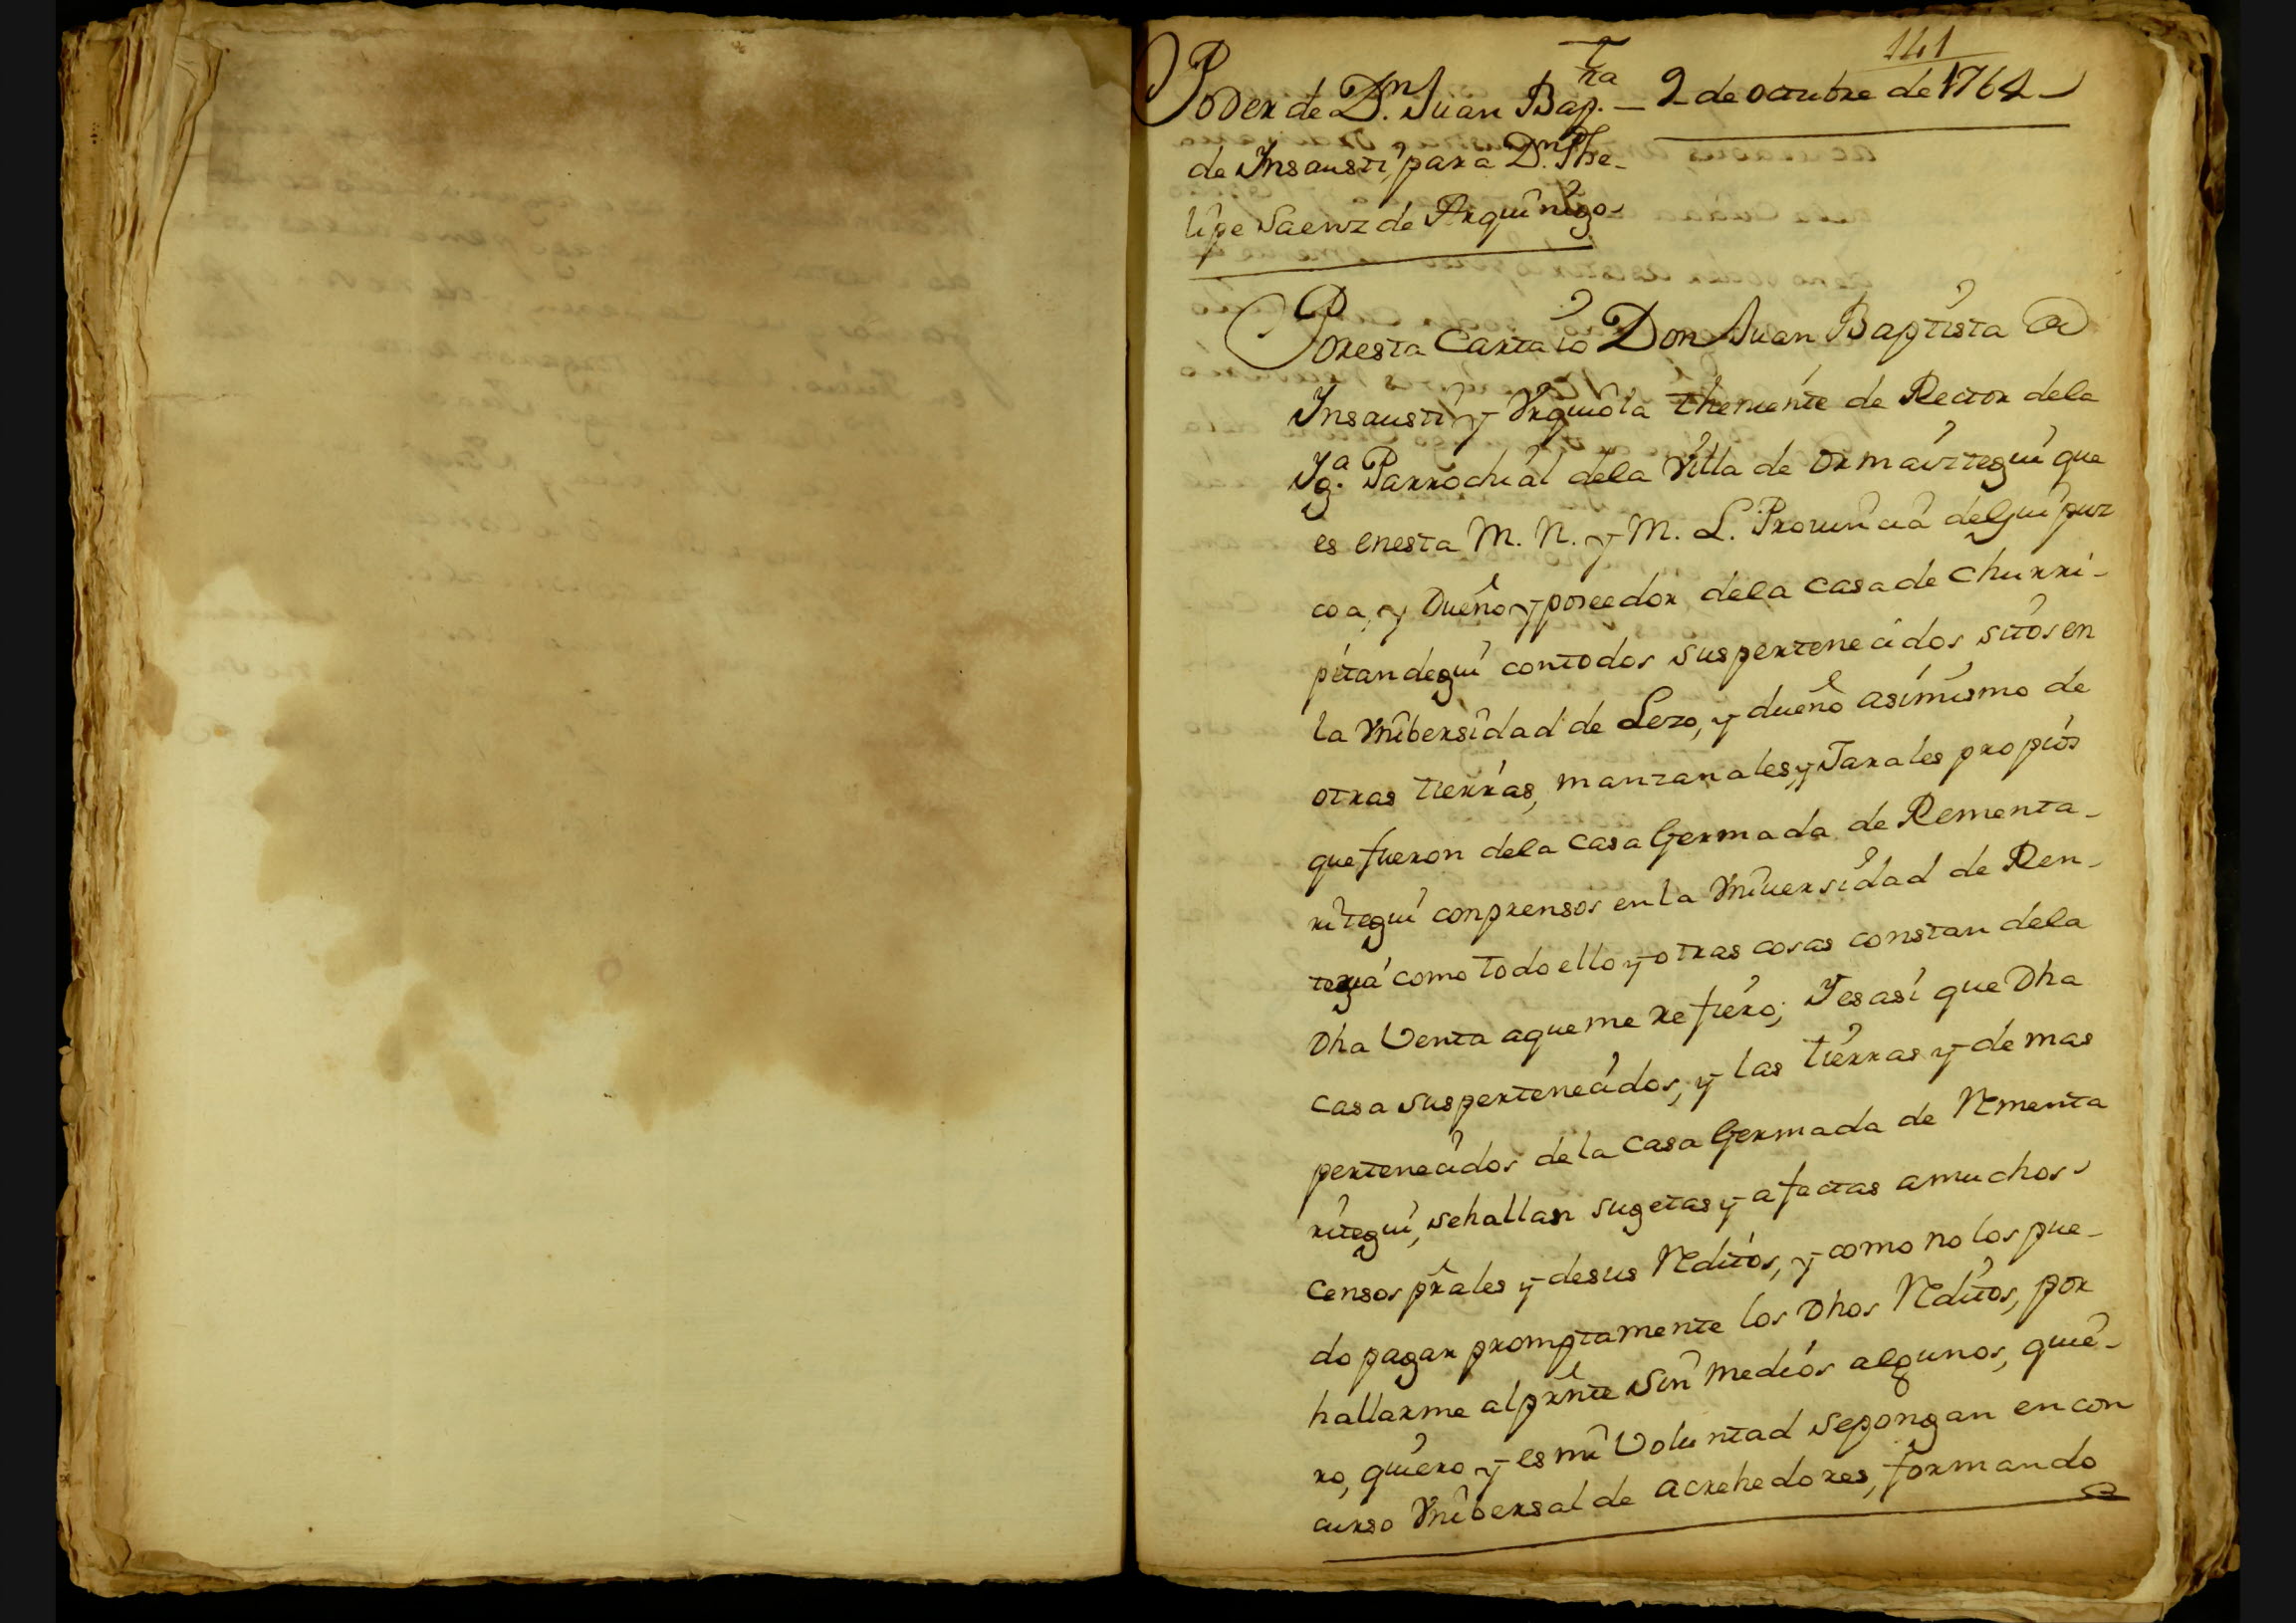 141
Poder de Dn. Juan Bapta. — 2 de octubre de 1764
de Insausti, para Dn. Phe-
lipe Saenz de Arguinigo
Por esta Carta io Don Juan Baptista de
Insausti y Vrquiola theniente de Rector dela
Yga. Parrochial dela Villa de Ormaiztegui que
es enesta M. N. y M. L. Provincia de Guipuz
coa, y Dueño y poseedor dela casa de Churri-
pitandegui contodos suspertenecidos sitos en
la Vnibersidad de Lezo, y dueño asimismo de
otras tierras, manzanales, y Jarales propios
que fueron dela casa Germada de Rementa-
ritegui conprensos en la Vniuersidad de Ren-
teria como todo ello y otras cosas constan dela
Dha Venta aque me refiero; Y es asi que Dha
casa suspertenecidos, y las tierras y demas
pertenecidos dela casa Germada de Rementa
ritegui, sehallan sugetas y afectas amuchos
censos prales y desus Reditos, y como no los pue-
do pagar promptamente los Dhos Reditos, por
hallarme alprnte sin medios algunos, quie-
ro, quiero y es mi Voluntad sepongan en con
curso Vnibersal de acrehedores, formando